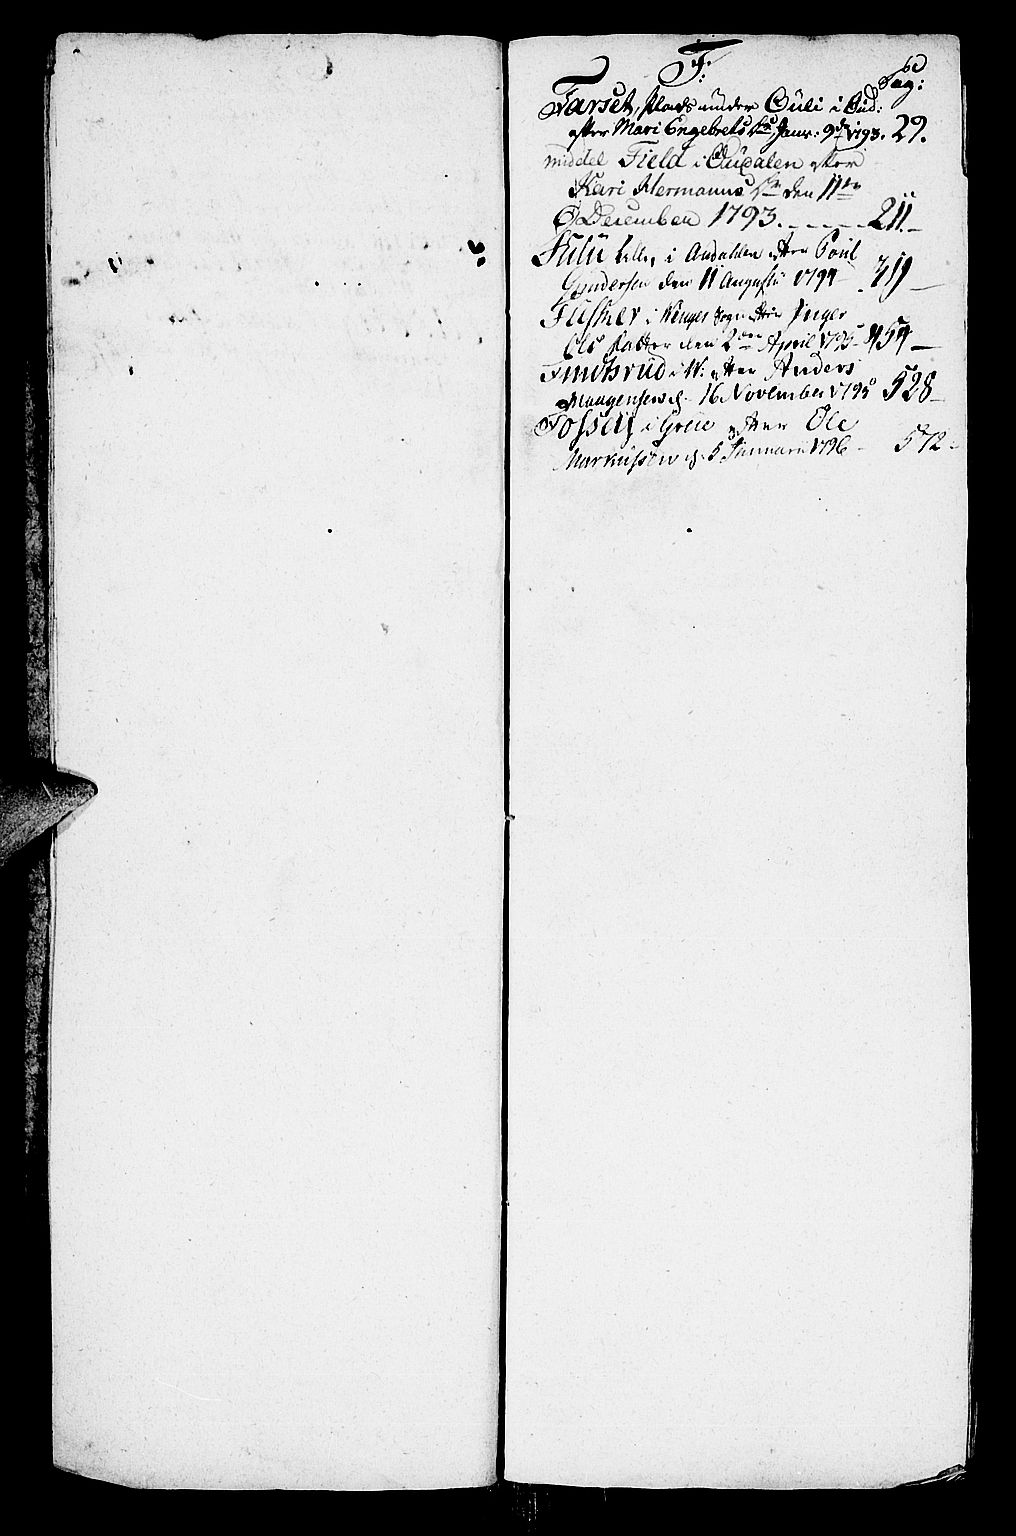 F:
Pag:
Farset, Plads under Culi i Aud:
efter Mari Engebrets Janr: 9de 1793. 29.
middel Field i Audalen efter
Kari Hermans den 11te
December 1793. 211.
i Audahlen efter Poul
Gundersen den 11 Augusti 1794 319
Fusker i Winger Sogn efter Inger
Ols Datter den 2den April 1795 454
i W: efter Anders
Maagensen d. 16 November 1795 528
i Grue efter Ole
Markussen d. 5 Januari 1796 572